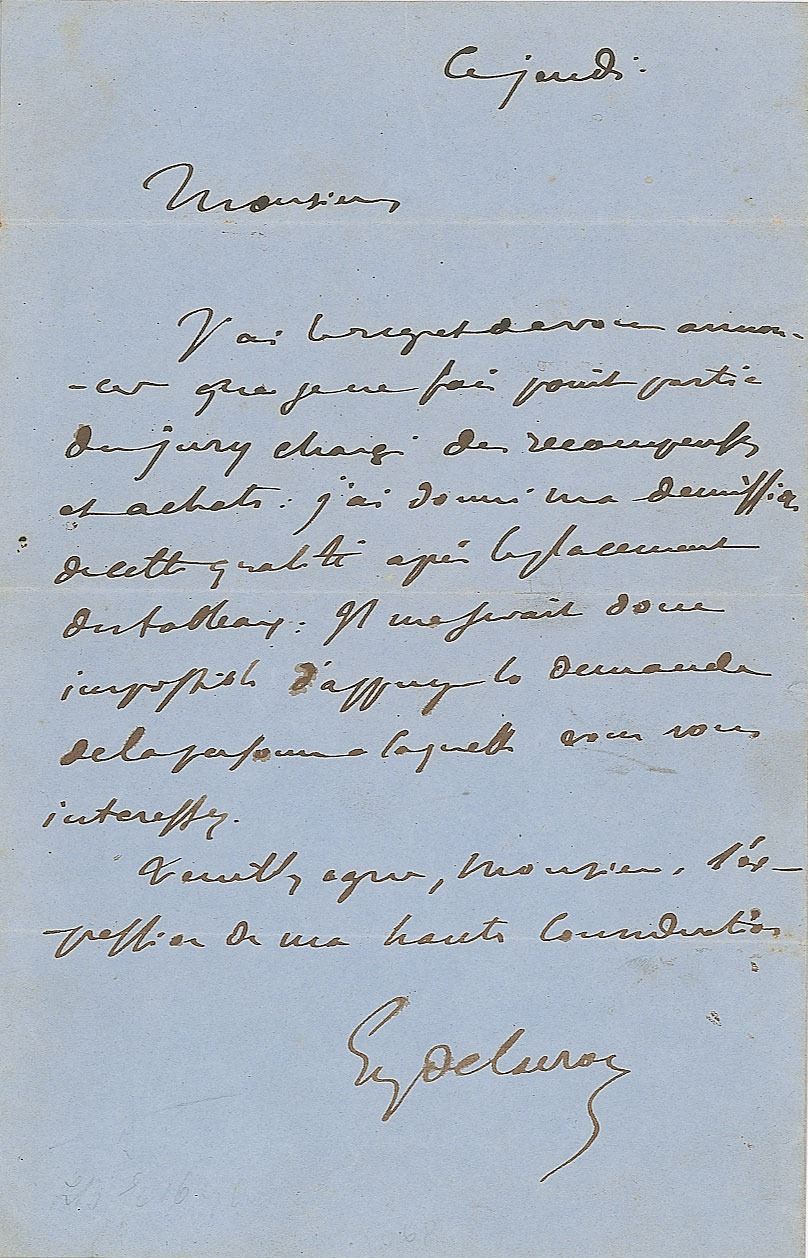 Ce jeudi.
Monsieur
J'ai le regret de vous annon-
-cer que je ne fais point partie
du jury chargé des recompenses
et achats : j'ai donné ma demission
de cette qualité après le placement
des tableaux : Il me serait donc
impossible d'appuyer la demande
de la personne a laquelle vous vous
interessez.
Veuillez agreer, Monsieur, l'ex-
-pression de ma haute consideration
Eug Delacroix